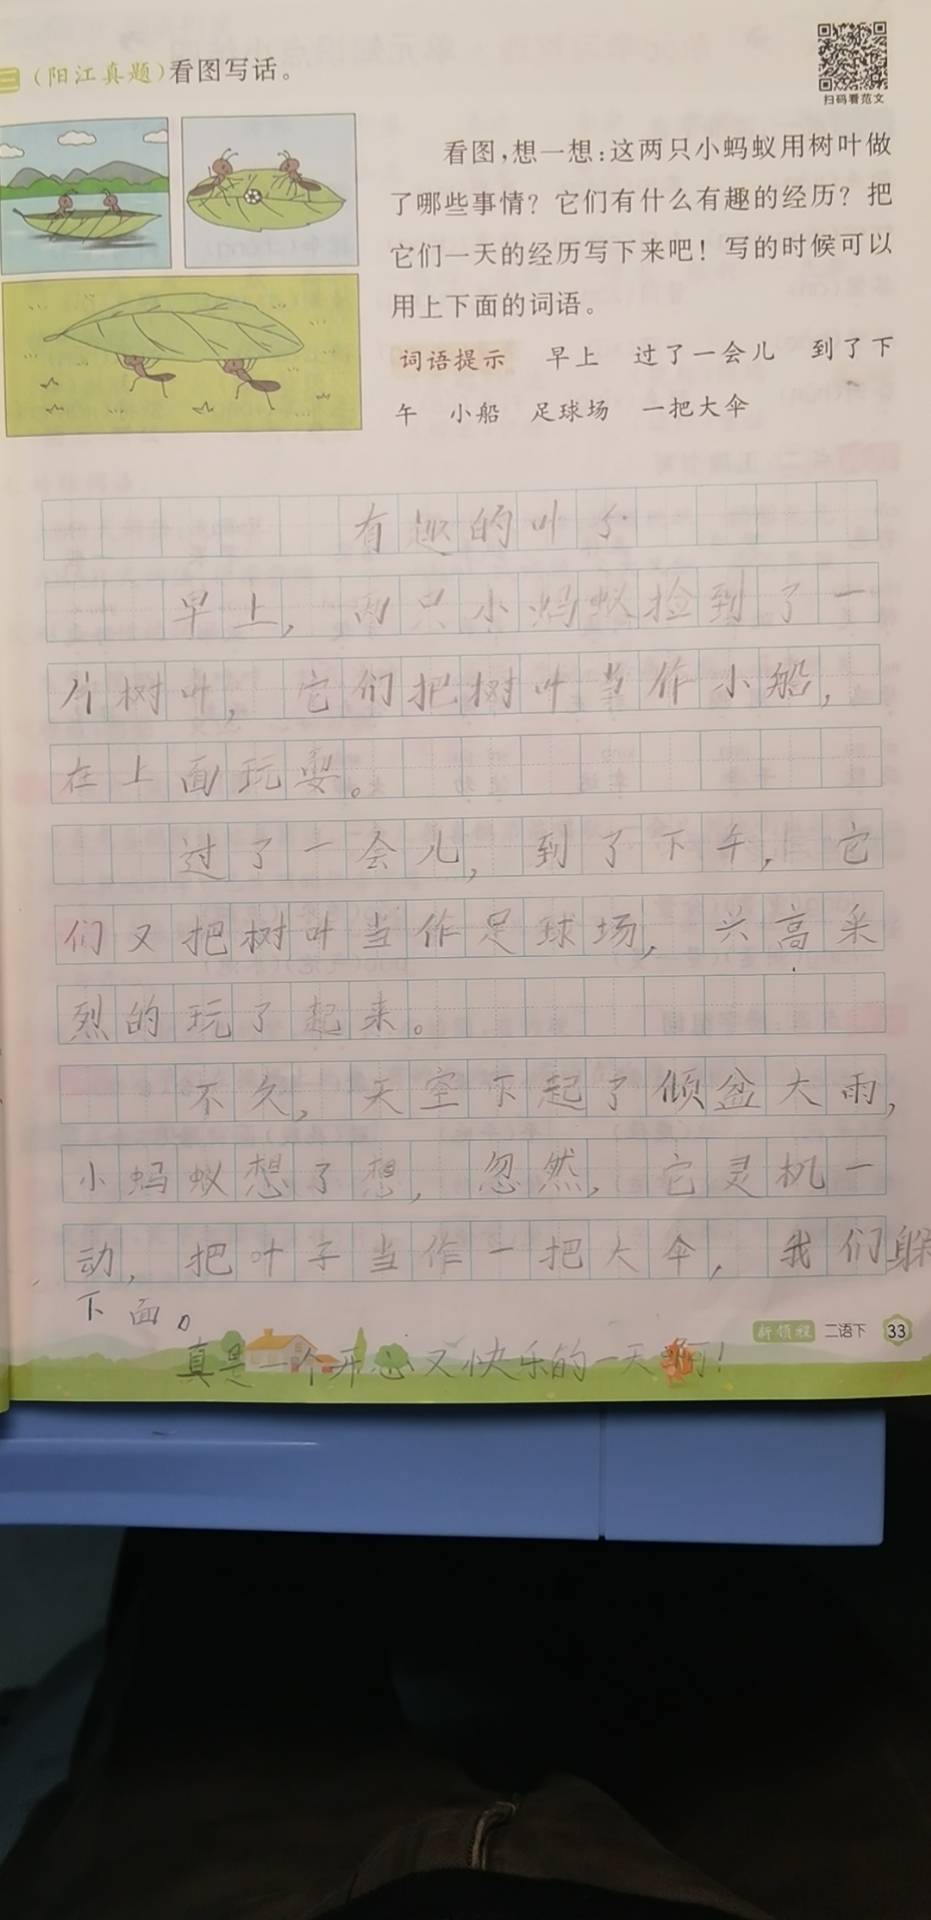 三（阳江真题）看图写话。
扫码看范文
看图,想一想:这两只小蚂蚁用树叶做
了哪些事情？它们有什么有趣的经历？把
它们一天的经历写下来吧！写的时候可以
用上下面的词语。
词语提示 早上 过了一会儿 到了下
午 小船 足球场 一把大伞
有趣的叶子
早上，两只小蚂蚁捡到了一
片树叶，它们把树叶当作小船，
在上面玩耍。
过了一会儿，到了下午，它
们又把树叶当作足球场，兴高采
烈的玩了起来。
不久，天空下起了倾盆大雨，
小蚂蚁想了想，忽然，它灵机一
动，把叶子当作一把大伞，我们躲
下面。
真是一个开心又快乐的一天啊！
新领程 二语下 33